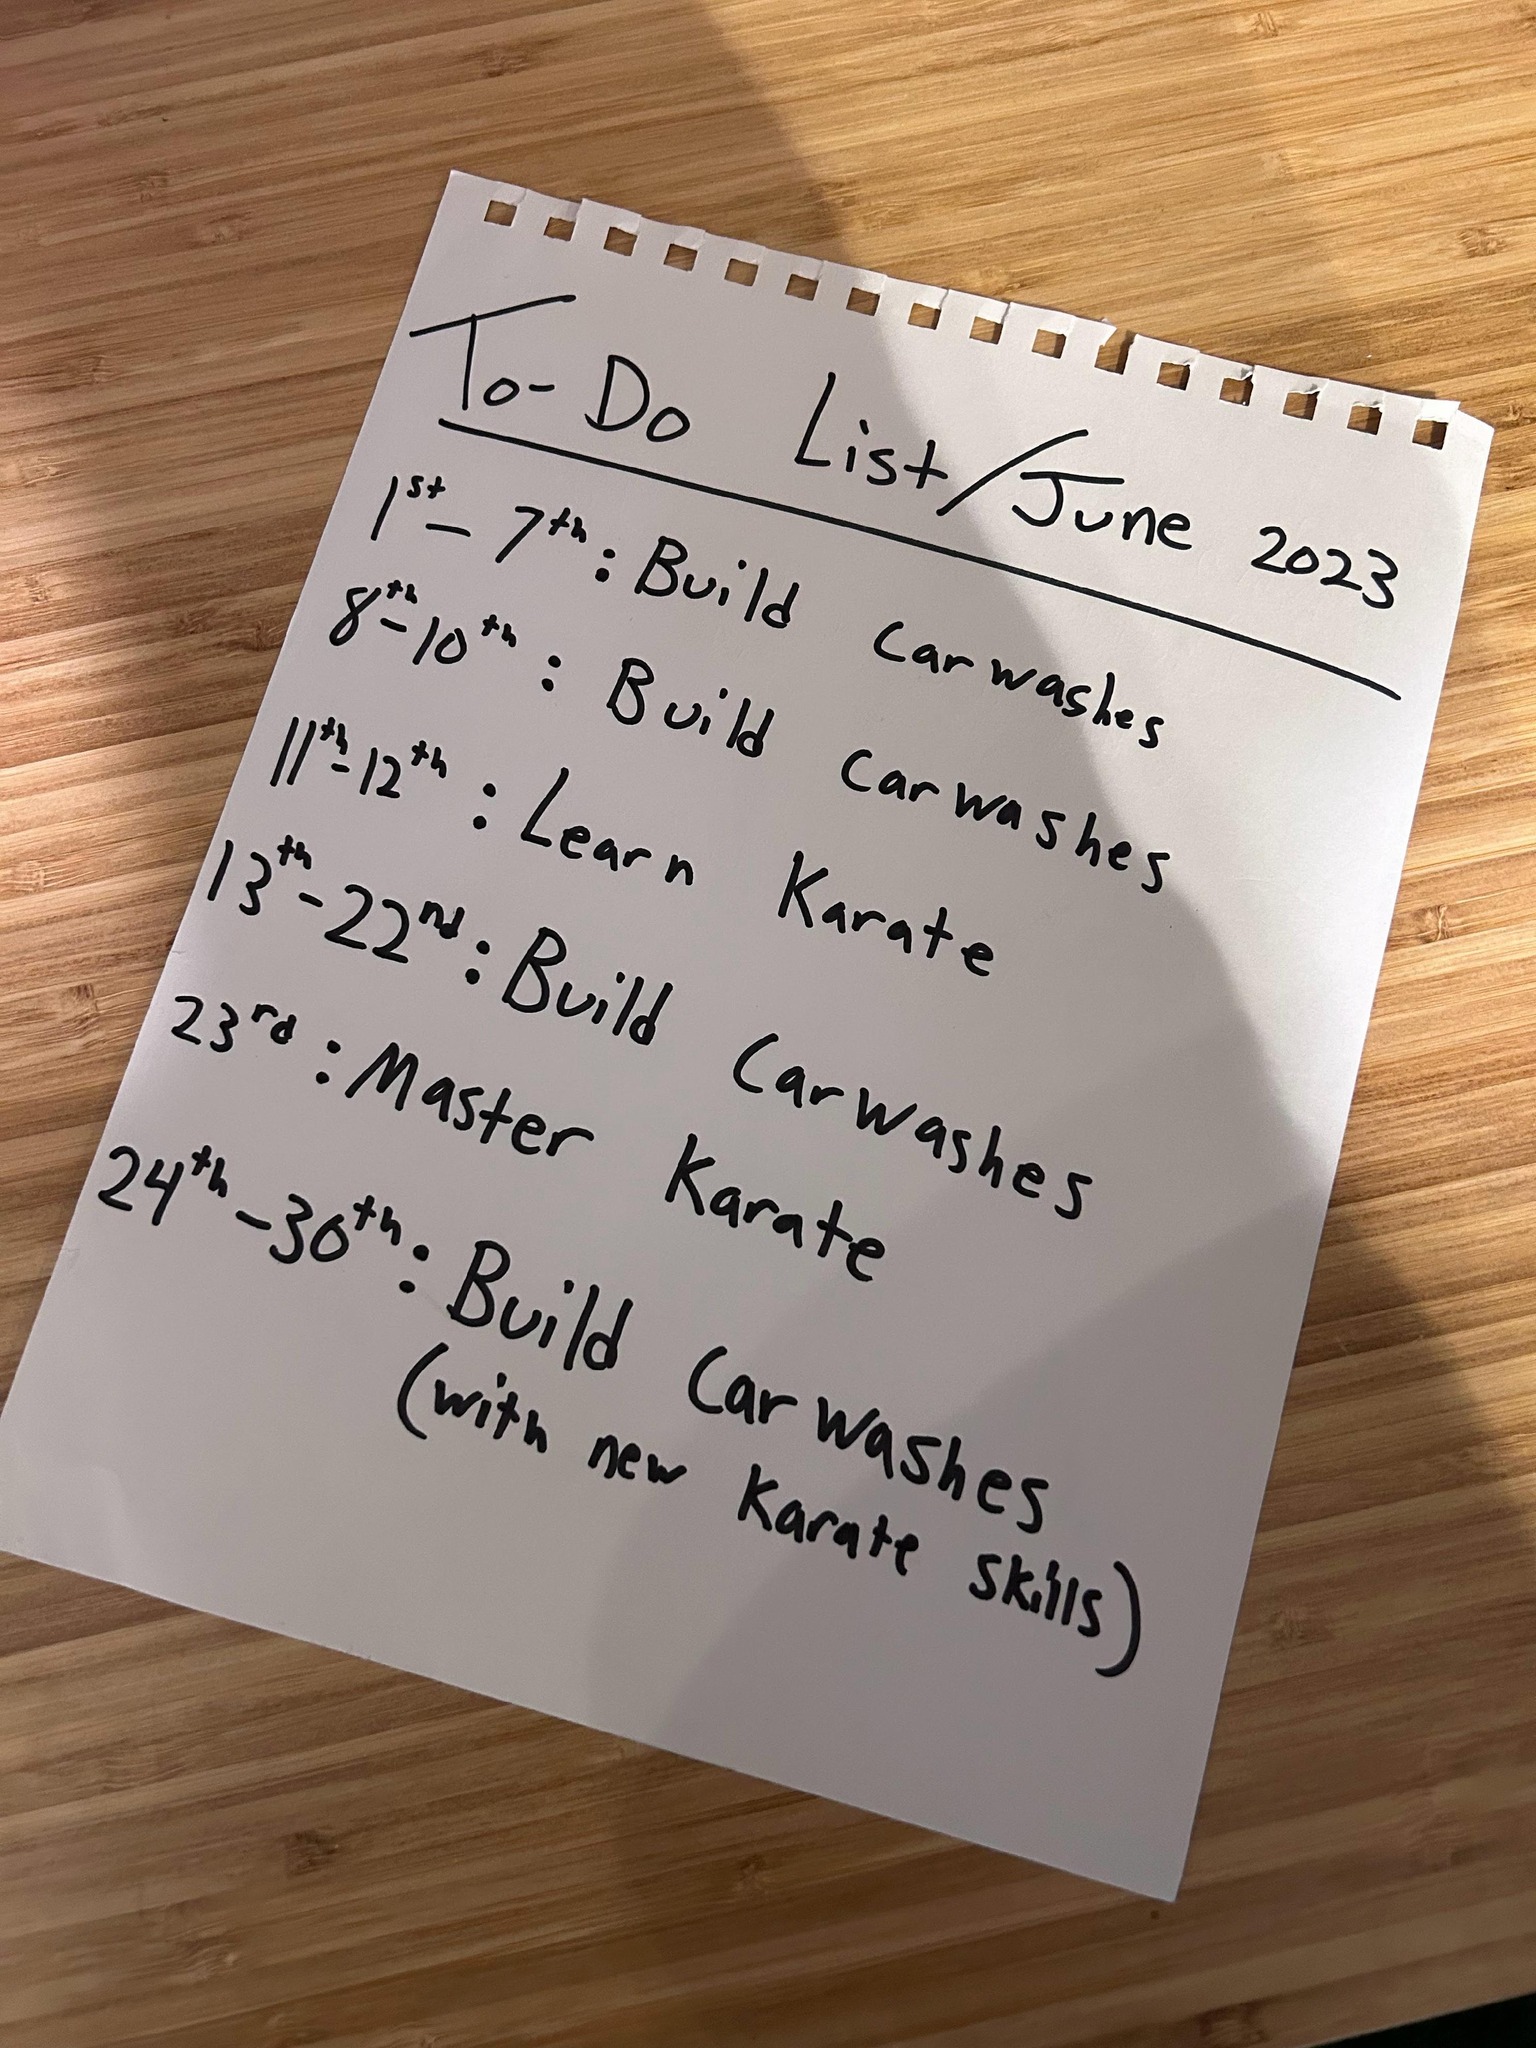 To-Do List/June 2023
1st-7th: Build Car washes
8th-10th: Build Car washes
11th-12th: Learn Karate
13th-22nd: Build Car washes
23rd: Master Karate
24th-30th: Build Car washes
(with new Karate skills)